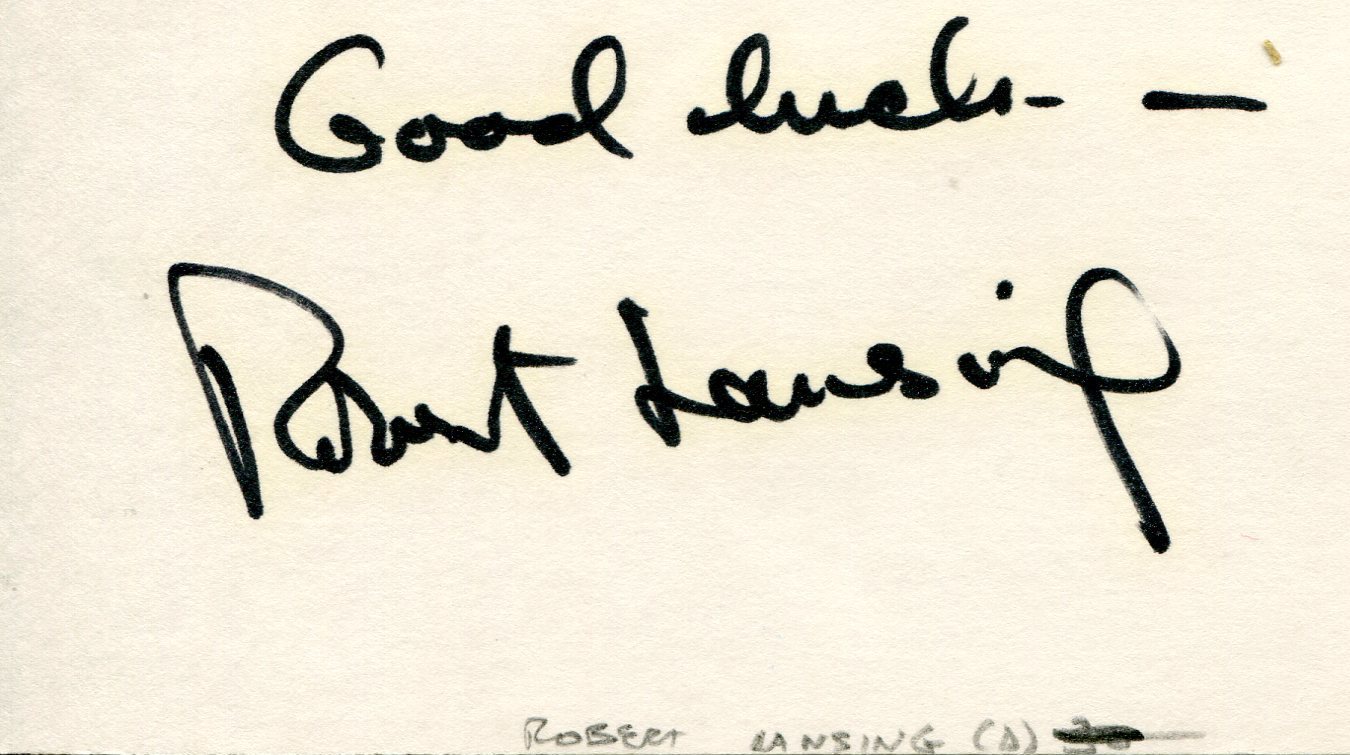 Good luck - —
Robert Lansing
ROBERT LANSING (D)